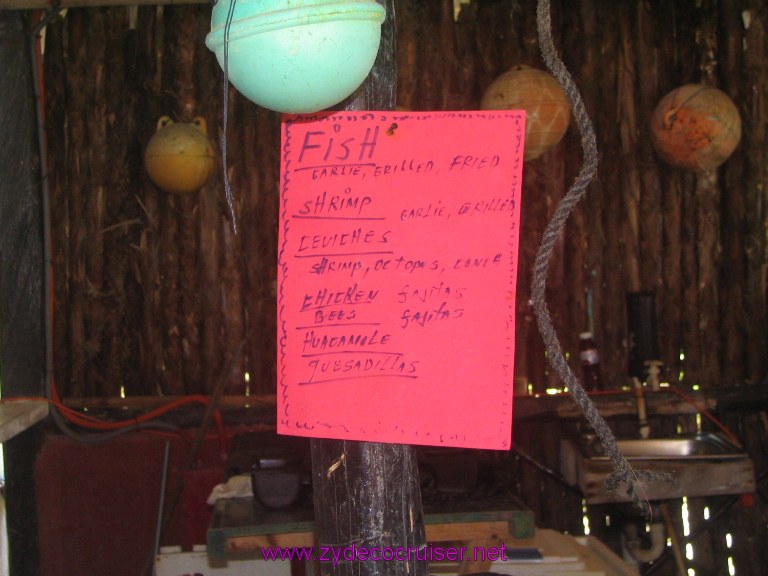 FisH
GARLIE, GRILLED, FRIED
SHRimp GARLIE, GRILLED
CEVICHES
SHRimp, OCTOPUS, CONCE
CHICKEN FAJITAS
BEES FAJITAS
HUACAMOLE
QUESADILLAS
www.zydecocruiser.net